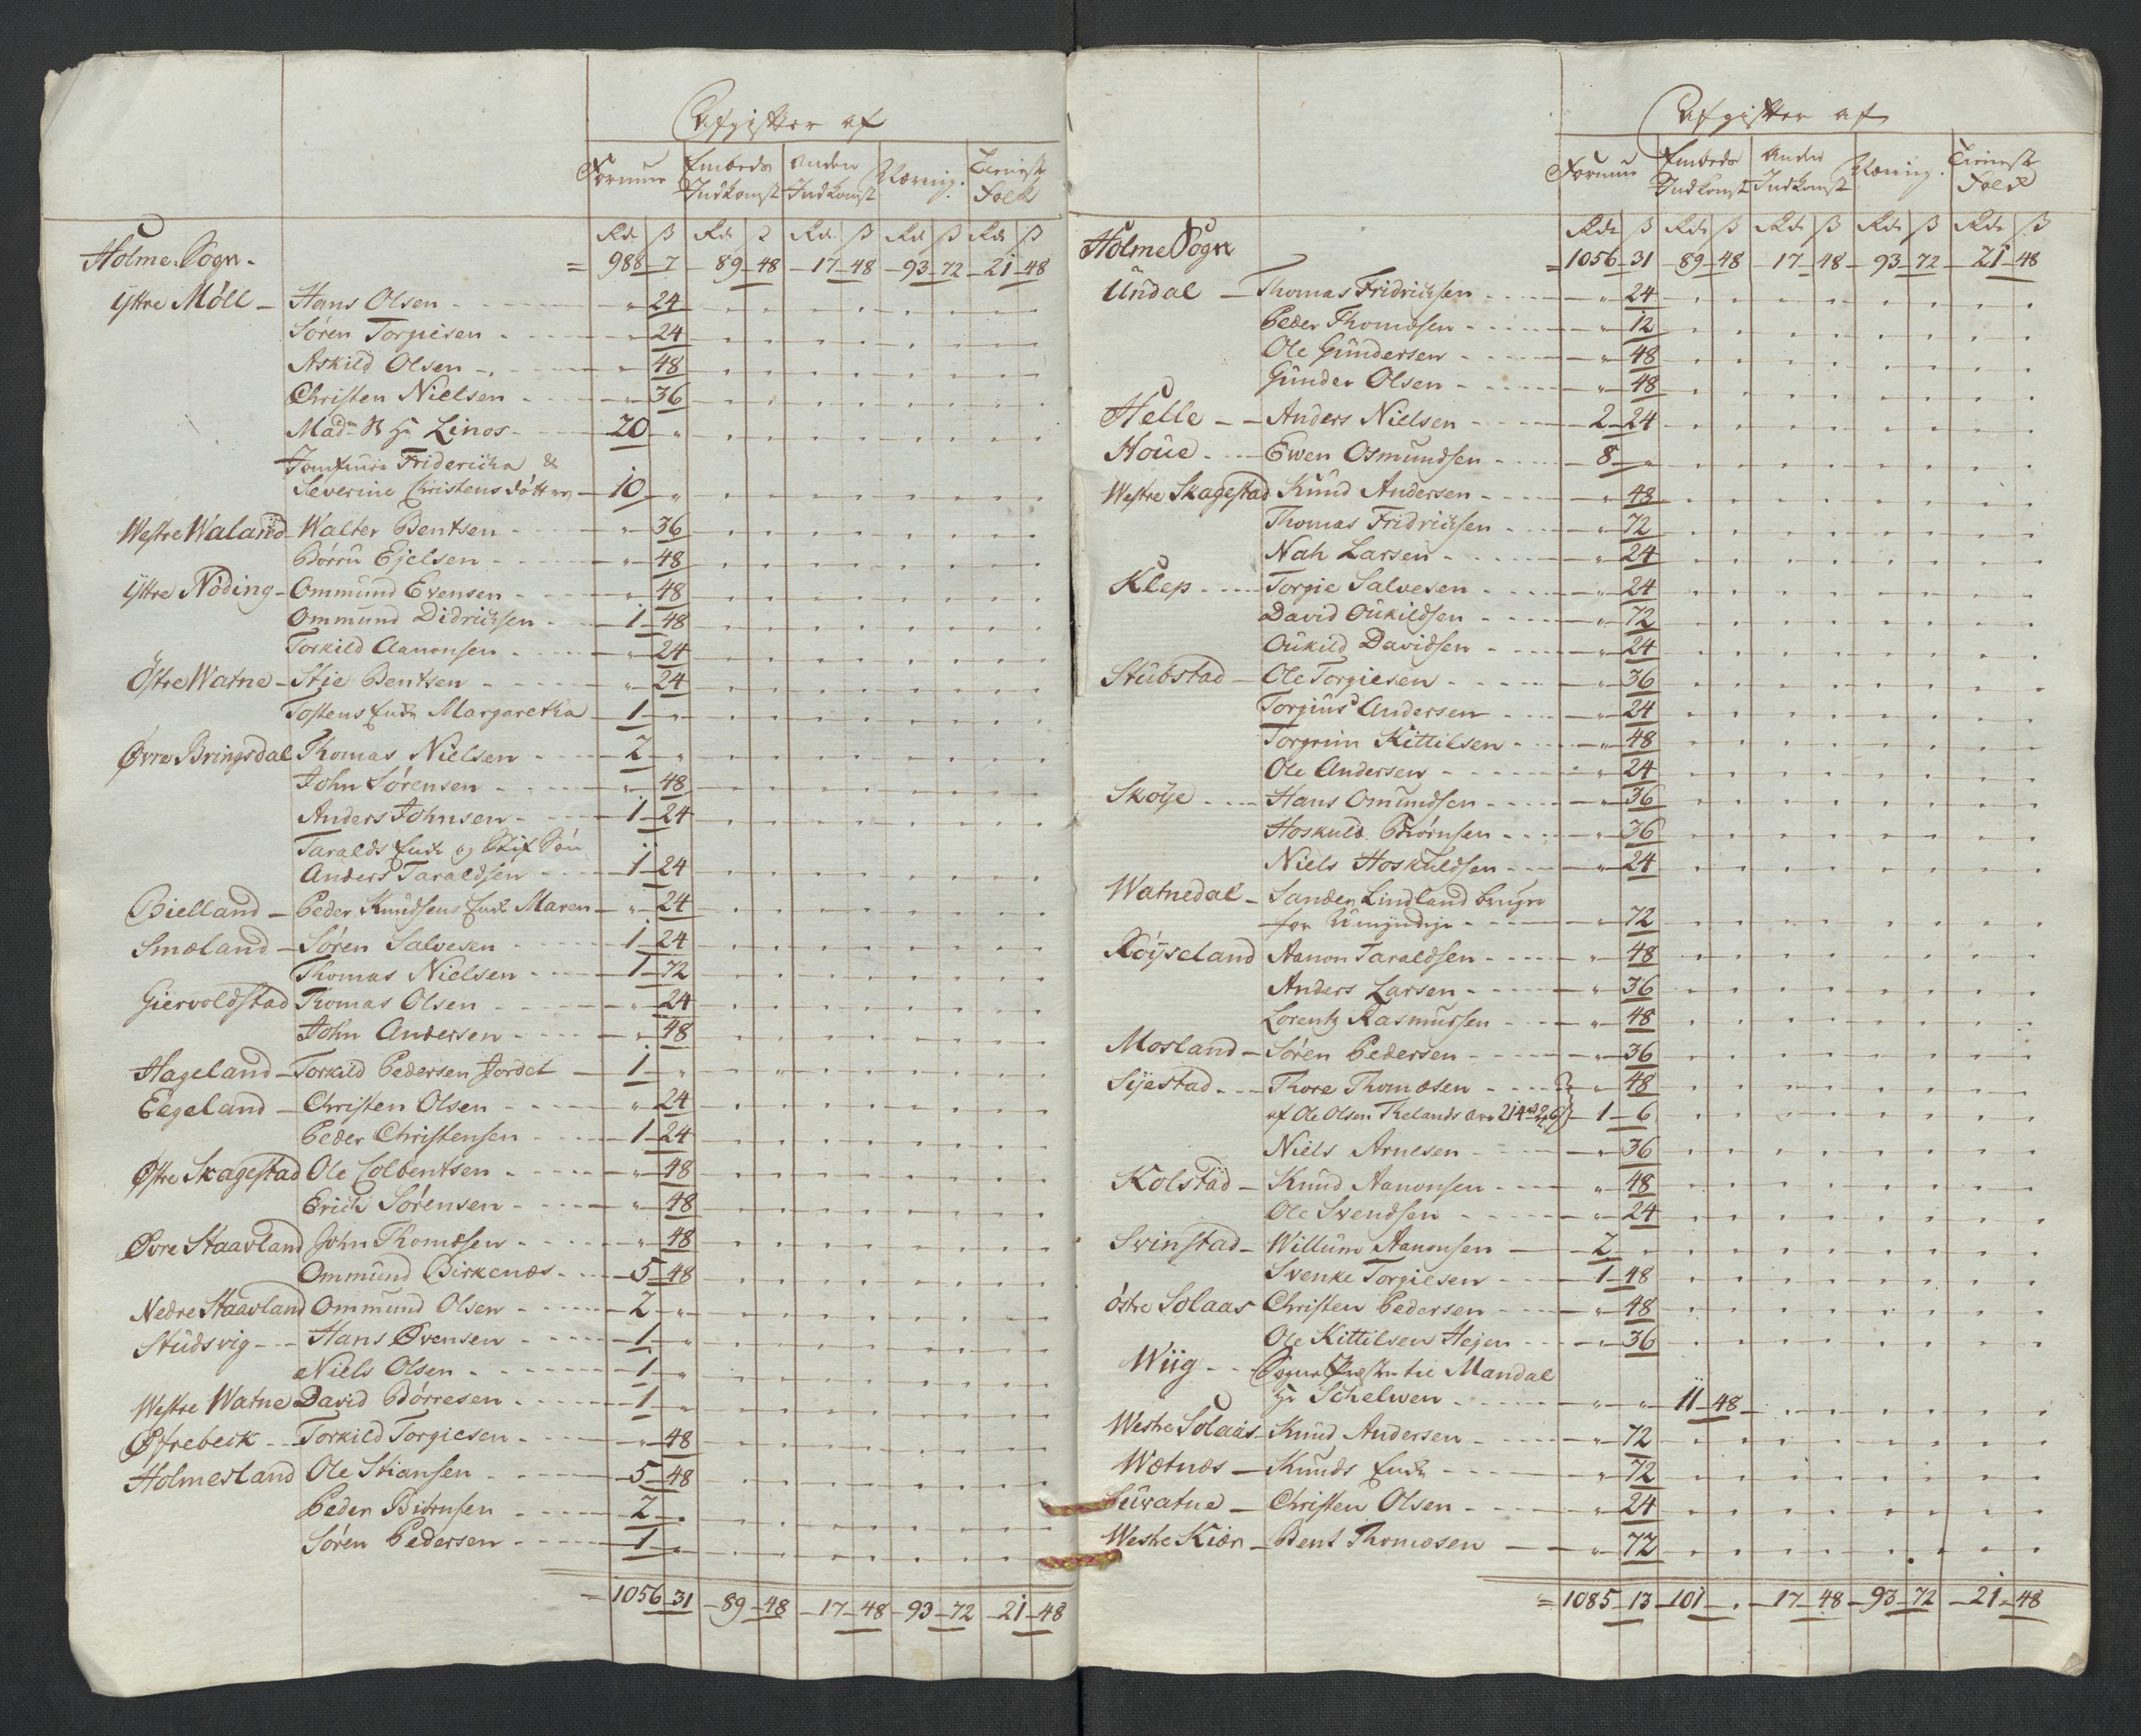 Afgifter af
Formue Embeds Indkomst Anden Indkomst Næring. Tieneste Folk
Rd. ß Rd. ß Rd. ß Rd. ß Rd. ß
Holme Sogn - = 988 - 7 - 89 - 48 - 17 - 48 - 93 - 72 - 21 - 48
Ÿttre Möll - Hans Olsen - " 24
Sören Torgiesen - " 24
Askild Olsen - " 48
Christen Nielsen - " 36
Madm Sl Hr Linos - 20 - "
Jomfruer Fridericha &
Severine Christensdötter - 10 - "
Westre Waland - Walter Bentsen - " 36
Börru Ejelsen - " 48
Ÿttre Nöding - Ommund Evensen - " 48
Ommund Didrichsen - 1 - 48
Torkild Aanonsen - " 24
Östre Watne - Stie Bentsen - " 24
Tostens Enke Margaretha - 1 - "
Øvre Bringsdal Thomas Nielsen - 2 - "
John Sörensen - " 48
Anders Johnsen - 1 - 24
Taralds Enke og Stif Sön
Anders Taraldsen - 1 - 24
Bielland - Peder Knudsens Enke Maren - " 24
Smæland - Sören Salvesen - 1 - 24
Thomas Nielsen - 1 - 72
Giervoldstad Thomas Olsen - " 24
John Andersen - " 48
Hageland - Torkild Pedersen Jordet - 1 - "
Eegeland - Christen Olsen - " 24
Peder Christensen - 1 - 24
Østre Skagestad Ole Colbentsen - " 48
Erich Sörensen - " 48
Øvre Staavland John Thomæsen - " 48
Ommund Birkenæs - 5 - 48
Nedre Staavland Ommund Olsen - 2 - "
Studsvig - Hans Evensen - 1 - "
Niels Olsen - 1 - "
Westre Watne David Börresen - 1 - "
Øfrebeck - Torkild Torgiesen - " 48
Holmesland Ole Stiansen - 5 - 48
Peder Biörnsen - 2 - "
Sören Pedersen - 1 - "
= 1056 - 31 - 89 - 48 - 17 - 48 - 93 - 72 - 21 - 48
Afgifter af
Formue Embeds Indkomst Anden Indkomst Næring. Tieneste Folk
Rdr ß Rdr ß Rdr ß Rdr ß Rdr ß
Holme Sogn = 1056 - 31 - 89 - 48 - 17 - 48 - 93 - 72 - 21 - 48
Undal - Thomas Fridrichsen - " 24
Peder Thomæsen - " 12
Ole Gundersen - " 48
Gunder Olsen - " 48
Helle - Anders Nielsen - 2 - 24
Houe - Ewen Osmundsen - 8 - "
Westre Skagestad Knud Andersen - " 48
Thomas Fridrichsen - " 72
Nah Larsen - " 24
Klep - Torgie Salvesen - " 24
David Oukildsen - " 72
Oukild Davidsen - " 24
Stubstad - Ole Torgiesen - " 36
Torgius Andersen - " 24
Torgrim Kittilsen - " 48
Ole Andersen - " 24
Skoÿe - Hans Omundsen - " 36
Hoskuld Biörnsen - " 36
Niels Hoskuldsen - " 24
Watnedal - Sander Lindland bruger
for Umyndige - " 72
Röÿseland Aanon Taraldsen - " 48
Anders Larsen - " 36
Lorentz Rasmussen - " 48
Mosland - Sören Pedersen - " 36
Sÿestad - Thore Thomæsen - " 48
af Ole Olsen Thelands arv 214 rd 26 ß - 1 - 6
Niels Arnesen - " 36
Kolstad - Knud Aanonsen - " 48
Ole Svendsen - " 24
Svinstad - Willum Aanonsen - 2 - "
Svenke Torgiesen - 1 - 48
östre Solaas Christen Pedersen - " 48
Ole Kittilsen Hejen - " 36
Wiig - Sogne Præsten til Mandal
Hr Schelwen - " " 11 - 48
Westre Solaas - Knud Andersen - " 72
Wætnæs - Knuds Enke - " 72
Suvatne - Christen Olsen - " 24
Westre Kiær - Bent Thomæsen - " 72
= 1085 - 13 - 101 - " - 17 - 48 - 93 - 72 - 21 - 48